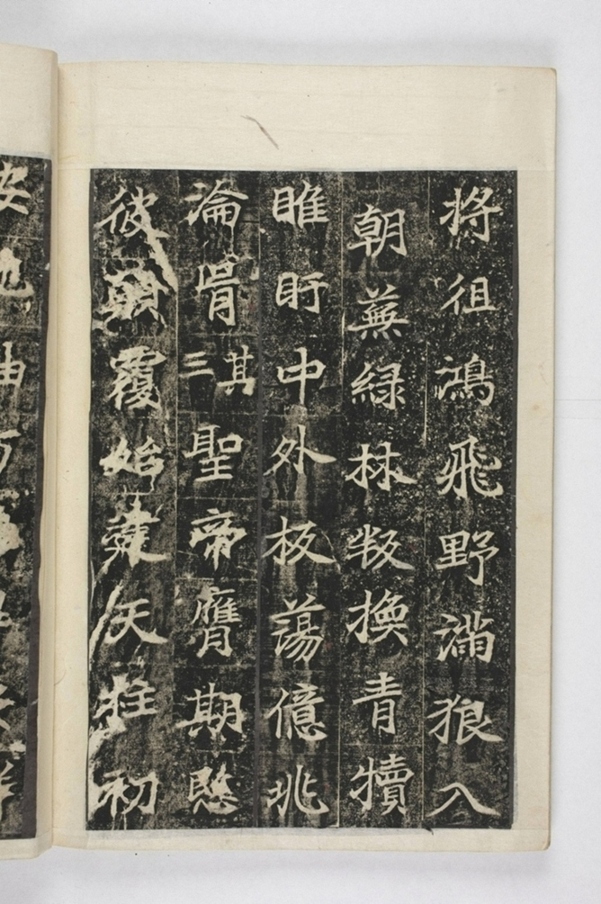 將徂鴻飛野滿狼入
朝蕪緑林叛換青犢
睢盱中外板蕩億兆
淪胥其三聖帝膺期愍
彼顛覆始建天柱初